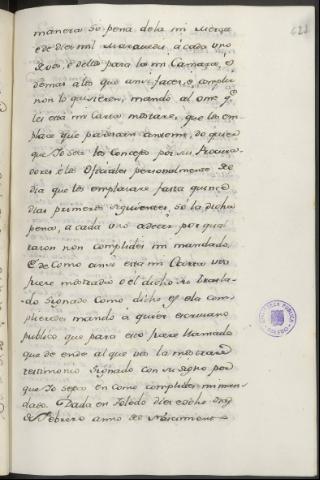 manera so pena dela mi merce
e de dies mil maravedis à cada uno
de vos, è delos para la mi Camara, è
demas alos que ansi facer, è complir
non lo quisieren, mando al ome q.e
les esta mi Carta mostrare, que los em-
place que parescan ante mi, do quier
que Yo sea los Concejos por sus Procura-
dores è los Oficiales personalmente del
dia que los emplazare fasta quince
dias primeros siguientes, so la dicha
pena, à cada uno à decir por qual
razon non complides mi mandado.
E de Como ansi esta mi Carta vos
fuere mostrada ò el dicho su trasla-
do signado Como dicho es è la com-
plieredes mando à quier escrivano
publico que para esto fuere llamado
que de ende al que vos la mostrare
testimonio signado con su signo por
que Yo sepa en como complides mi man-
dado. Dada en Toledo dies è ocho dias
de Febrero anno del Nascimiento
621
BIBLIOTECA PUBLICA
TOLEDO